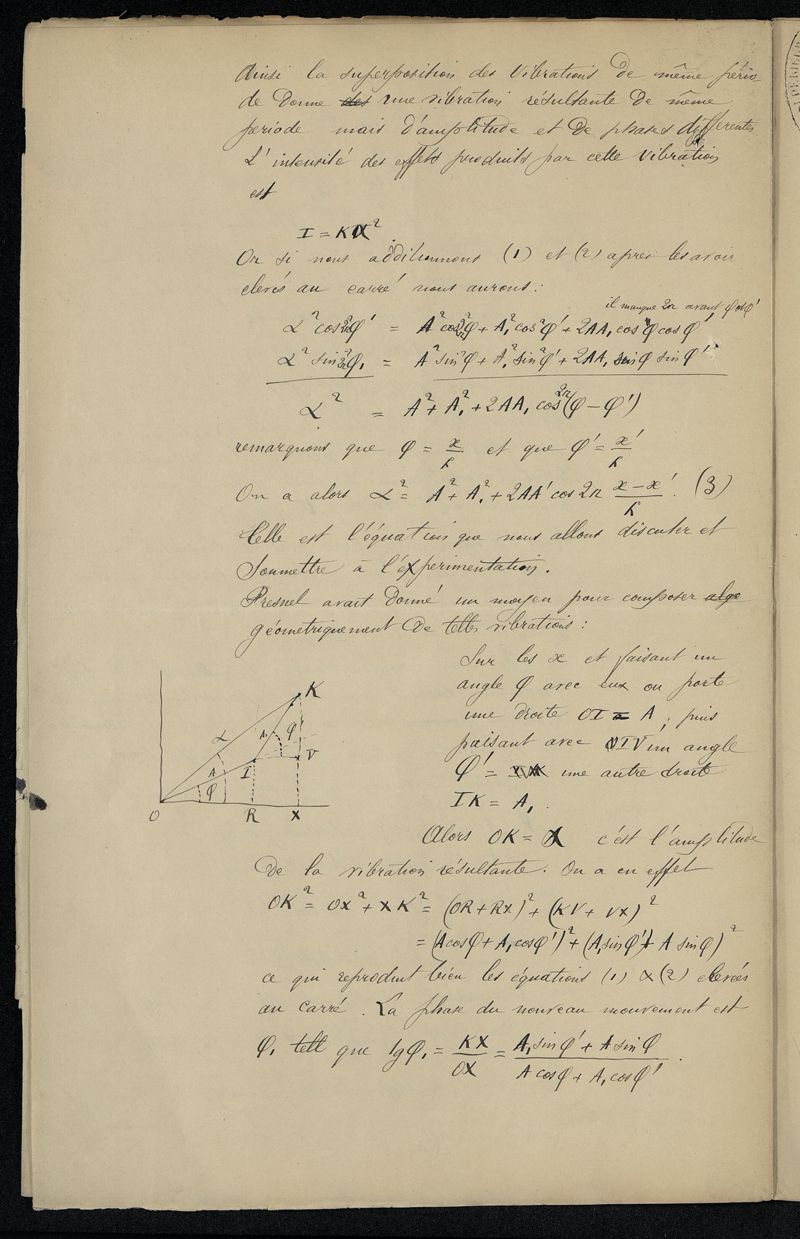 Ainsi la superposition des vibrations de même pério
de donne des une vibration résultante de même
période mais d'amplitude et de phases différentes
L'intensité des effets produits par cette vibration
est
I = Kα².
Or si nous additionnons (1) et (2) apres les avoir
elevés au carré nous aurons :
il manque 2π avant φ et φ'
α² cos² φ' = A² cos² φ + A₁² cos² φ' + 2AA₁ cos φ cos φ'
α² sin² φ₁ = A² sin² φ + A₁² sin² φ' + 2AA₁ sin φ sin φ'
α² = A² + A₁² + 2AA₁ cos 2π (φ − φ')
remarquons que φ = x/λ et que φ' = x'/λ
On a alors α² = A² + A₁² + 2AA' cos 2π (x − x')/λ . (3)
Telle est l'équation que nous allons discuter et
Soumettre à l'éxperimentation.
Fresnel avait donné un moyen pour composer alge
géometriquement de telles vibrations :
Sur les x et faisant un
angle φ avec eux on porte
une droite OI = A ; puis
faisant avec OIV un angle
φ' = une autre droite
IK = A₁.
K
α
A₁
φ'
A
I
V
φ
O
R
X
Alors OK = α c'est l'amplitude
De la vibration résultante. On a en effet
OK² = OX² + XK² = (OR + RX)² + (KV + VX)²
= (A cos φ + A₁ cos φ')² + (A₁ sin φ' + A sin φ)²
ce qui reproduit bien les équations (1) & (2) elevées
au carré. La phase du nouveau mouvement est
φ₁ tell que tg φ₁ = KX/OX = (A₁ sin φ' + A sin φ)/(A cos φ + A₁ cos φ').